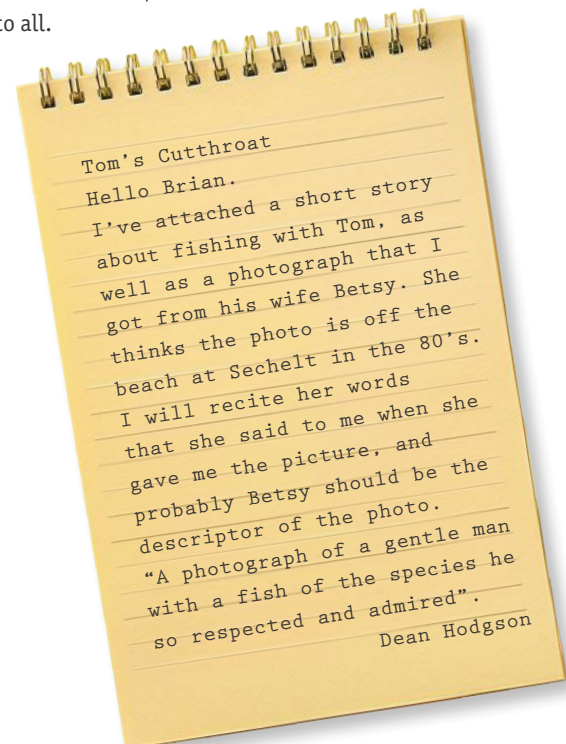 to all.
Tom's Cutthroat
Hello Brian.
I've attached a short story
about fishing with Tom, as
well as a photograph that I
got from his wife Betsy. She
thinks the photo is off the
beach at Sechelt in the 80's.
I will recite her words
that she said to me when she
gave me the picture, and
probably Betsy should be the
descriptor of the photo.
“A photograph of a gentle man
with a fish of the species he
so respected and admired”.
Dean Hodgson